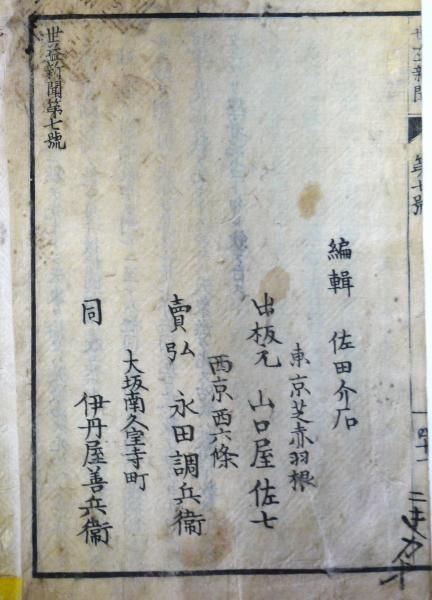 世益新聞
第七號
四十一
編輯 佐田介石
東京芝赤羽根
出板元 山口屋佐七
西京西六條
賣弘 永田調兵衞
大坂南久宝寺町
同 伊丹屋善兵衞
世益新聞第七號